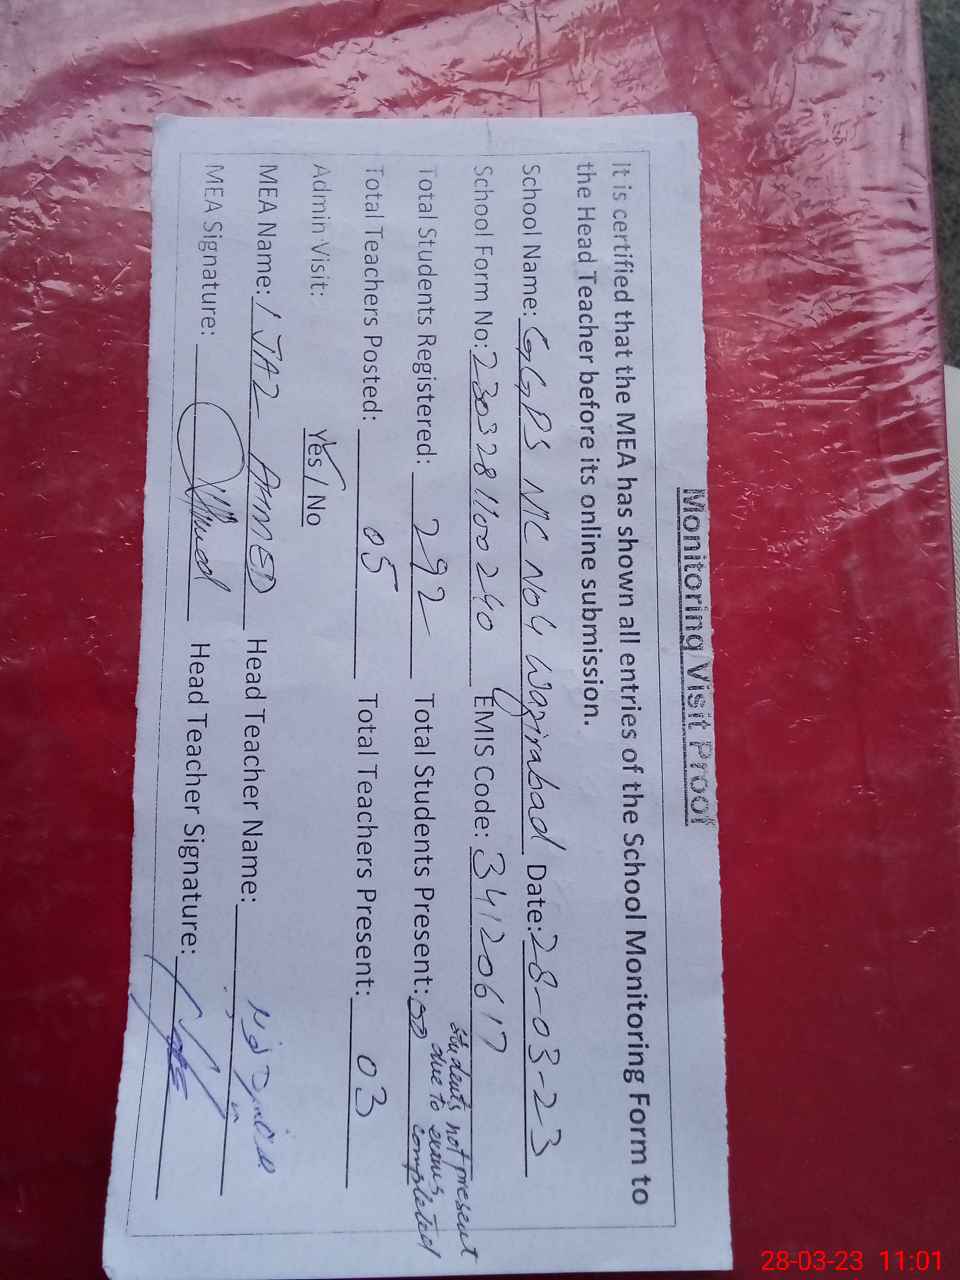 Monitoring Visit Proof
It is certified that the MEA has shown all entries of the School Monitoring Form to
the Head Teacher before its online submission.
School Name: GGPS MC No 4 Wazirabad Date: 28-03-23
School Form No: 2303281100240 EMIS Code: 34120617
students not present
due to exams
completed
Total Students Registered: 292 Total Students Present:
Total Teachers Posted: 05 Total Teachers Present: 03
Admin Visit: Yes / No
MEA Name: IJAZ AHMED Head Teacher Name:
MEA Signature: Head Teacher Signature:
28-03-23 11:01